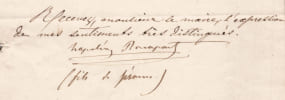 Recevez, monsieur le maire, l'expression
de mes sentiments très distingués.
Napoléon Bonaparte
(fils de Jérôme)